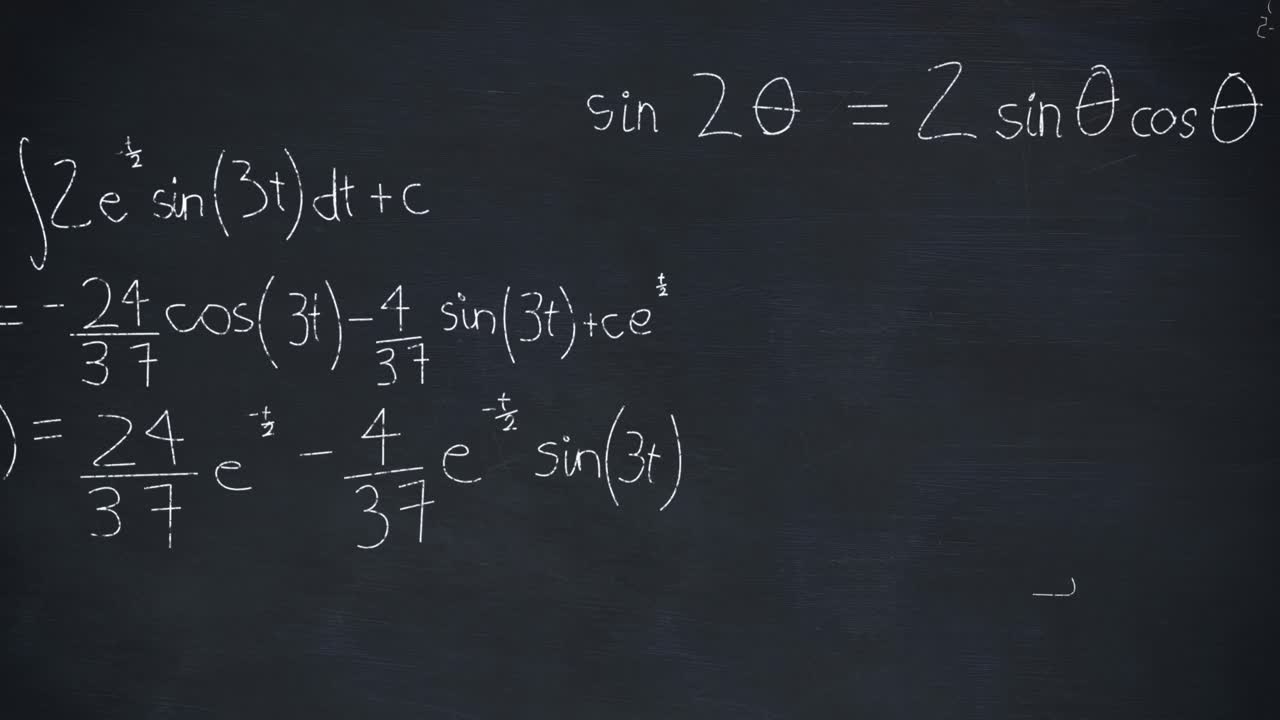 sin 2θ = 2 sinθ cosθ
∫2e^(-t/2) sin(3t)dt+c
= -24/37 cos(3t) - 4/37 sin(3t)+ce^(t/2)
) = 24/37 e^(-t/2) - 4/37 e^(-t/2) sin(3t)